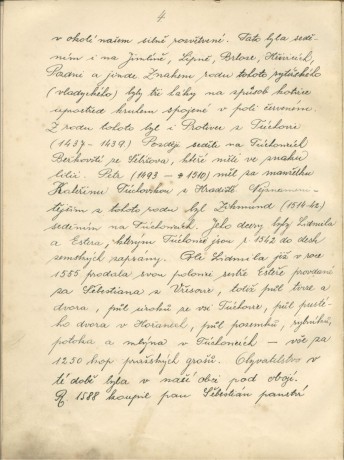 4
v okolí našem silně rozvětvené. Tato byla sedě-
ním i na Jimlíně, Lipně, Brloze,
Padni a jinde Znakem rodu tohoto rytířského
(vladyckého) byly tři laby na způsob kotvice
uprostřed kruhem spojené v poli červeném.
Z rodu tohoto byl i Protivec z Tuchořic
(1437-1439) Později seděli na Tuchořicích
Bečkovští ze Sebřova, kteří měli ve znaku
lilii. Petr (1493 - † 1510) měl za manželku
Kateřinu Tuchořskou z Hradiště. Význam-
nějším z tohoto rodu byl Zikmund (1514-62)
seděním na Tuchořicích. Jeho dcery byly Lidmila
a Estera, kterým Tuchořice jsou r 1562 do desk
zemských zapsány. Lidmila již v roce
1565 prodala svou polovici sestře Esteře provdané
za Šebestiána z Vřesovic, totiž půl tvrze a
dvora, půl sirotků ve vsi Tuchořice, půl pusté-
ho dvora v, půl pozemků, rybníků,
potoka a mlýna v Tuchořicích - vše za
1250 kop pražských grošů. Obyvatelstvo v
té době byla v naší obci pod obojí.
R 1588 koupil pan Šebestián panství